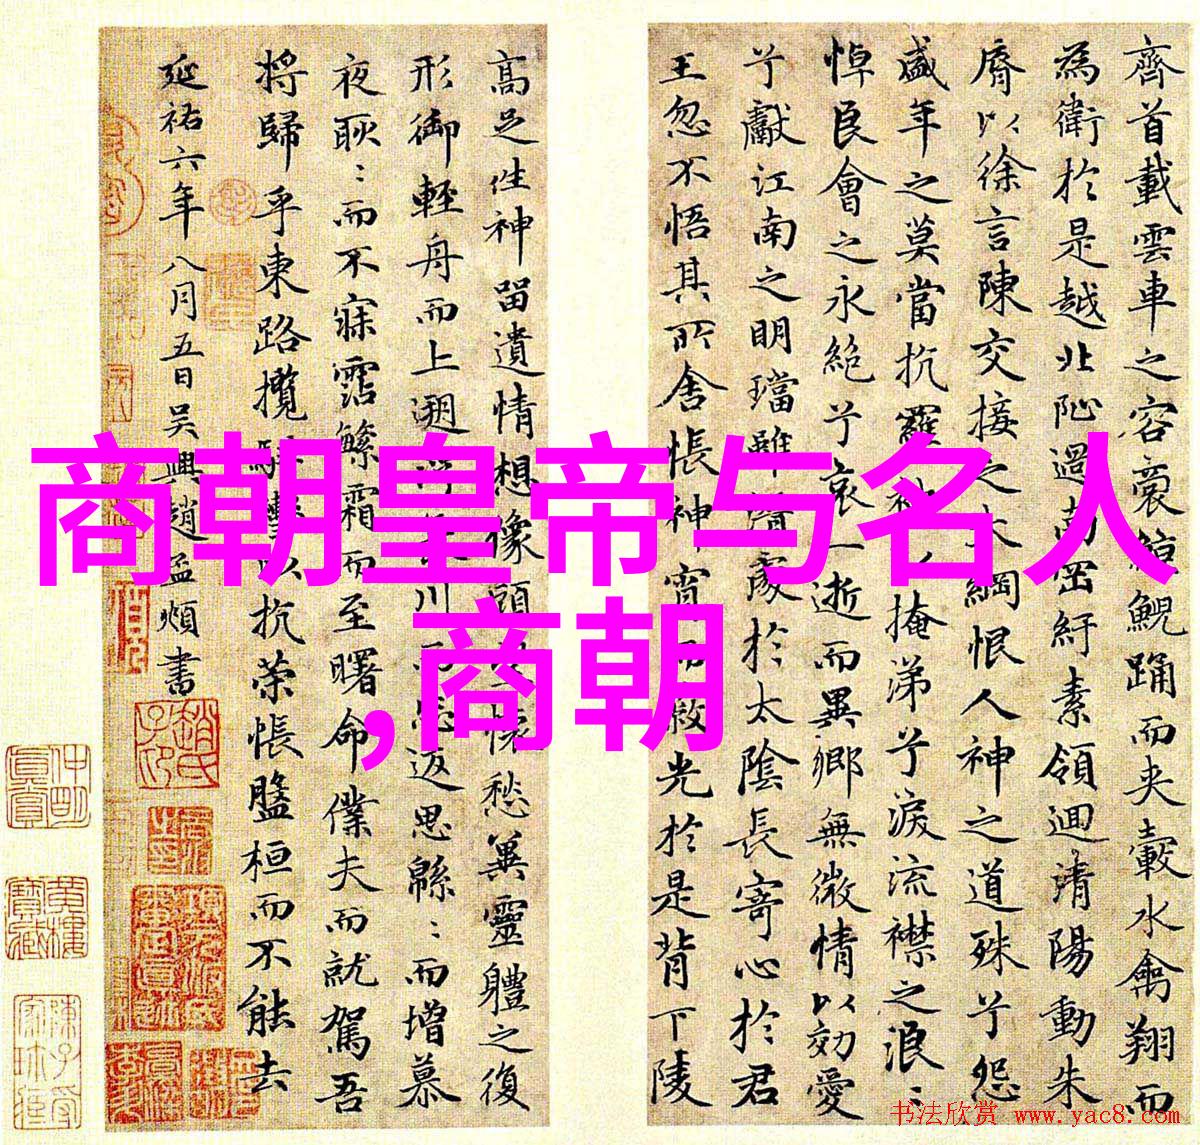 齊首載雲車之容裔鯨鯢踊而夾轂水禽翔而
為衛於是越北沚過南岡紆素領迴清陽動朱
脣以徐言陳交接之大綱恨人神之道殊兮怨
盛年之莫當抗羅掩涕兮淚流襟之浪〻
悼良會之永絕兮哀一逝而異鄉無微情以効愛
兮獻江南之明璫雖潛處於太陰長寄心於君
王忽不悟其所舍悵神宵而蔽光於是背下陵
高足往神留遺情想像顧懷愁冀靈體之復
形御輕舟而上遡川而忘返思緜〻而增慕
夜耿〻而不寐霑繁霜而至曙命僕夫而就駕吾
將歸乎東路攬以抗策悵盤桓而不能去
延祐六年八月五日吳興趙孟頫書
商朝皇帝与名人
,商朝
书法欣赏 www.yac8.com